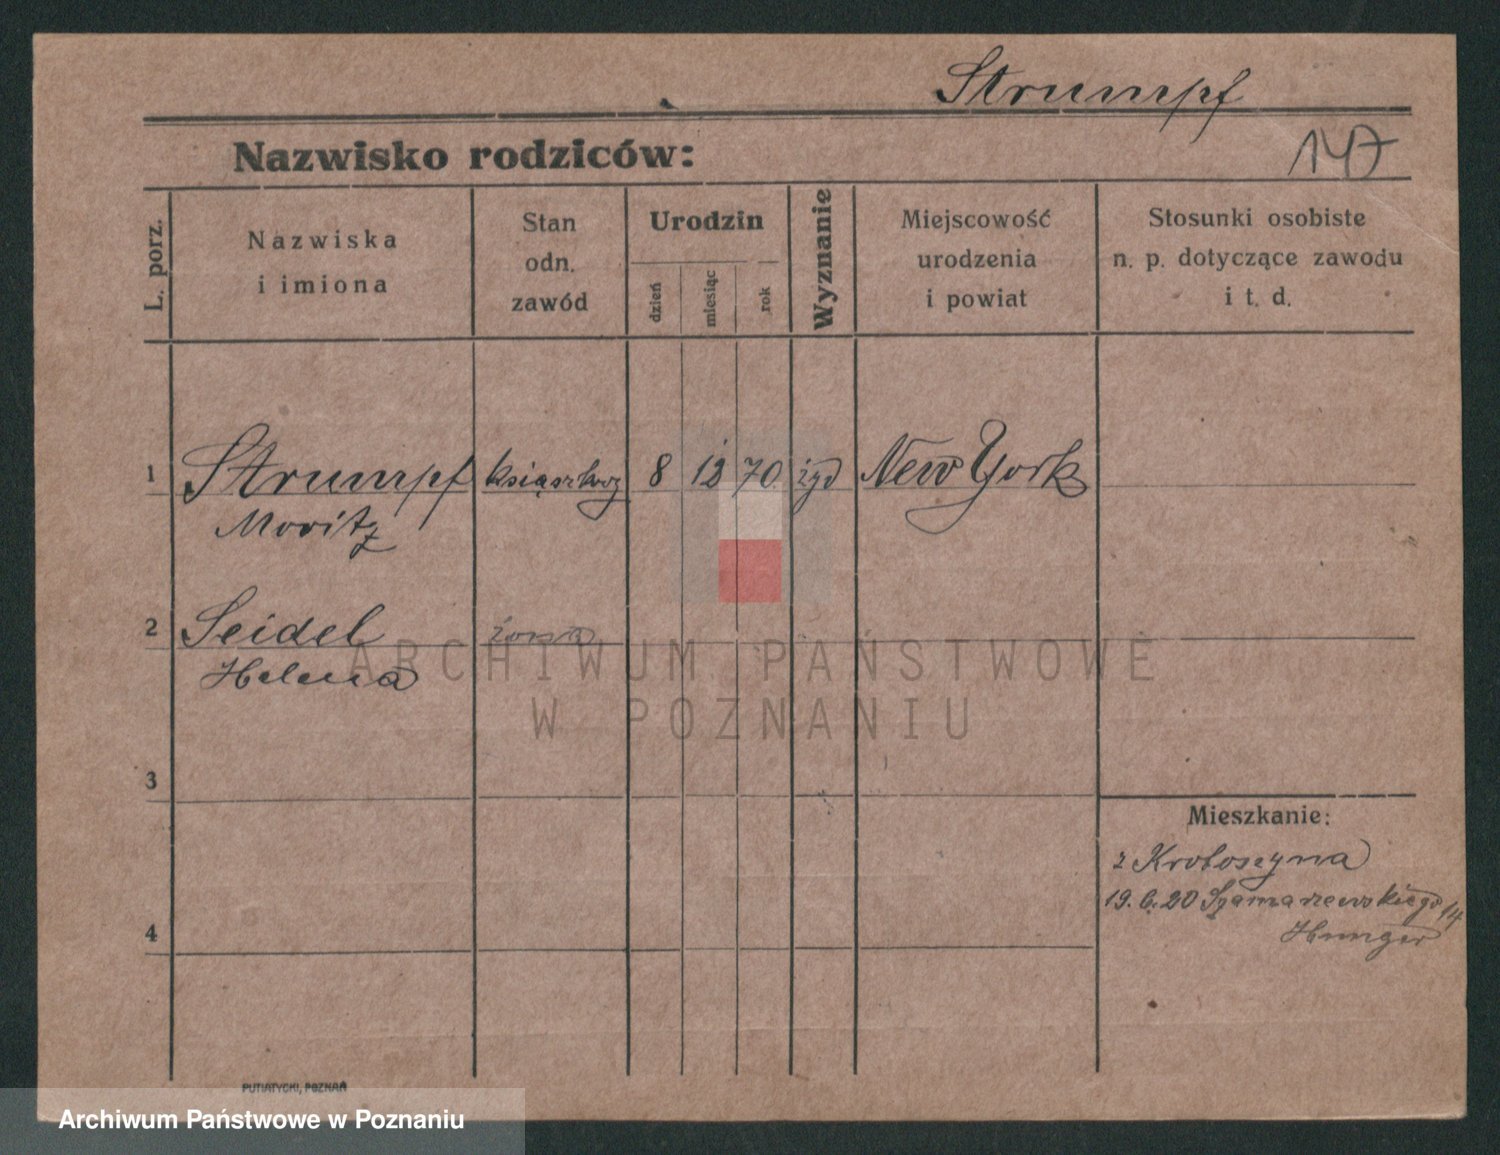 Strumpf
147
Nazwisko rodziców:
L. porz.
Nazwiska
i imiona
Stan
odn.
zawód
Urodzin
dzień
miesiąc
rok
Wyznanie
Miejscowość
urodzenia
i powiat
Stosunki osobiste
n. p. dotyczące zawodu
i t. d.
1 Strumpf 8 12 70 żyd New York
Moritz
2 Seidel żona
Helena
3
Mieszkanie:
z Krotoszyna
19. 6. 20 Szamarzewskiego 14
Hunger
4
PUTIATYCKI, POZNAŃ
ARCHIWUM PAŃSTWOWE
W POZNANIU
Archiwum Państwowe w Poznaniu